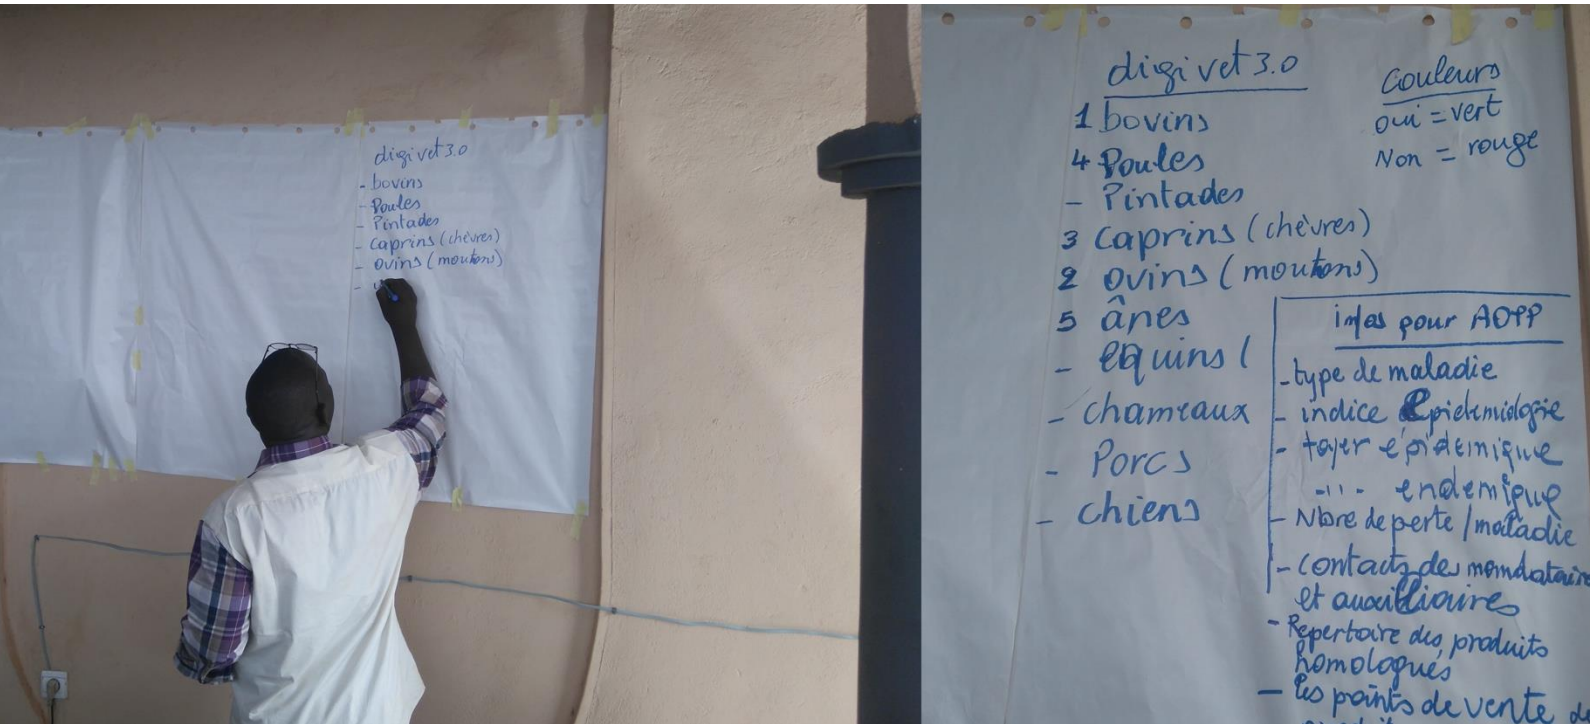 digivet 3.0
- bovins
- Poules
- Pintades
- Caprins (chèvres)
- ovins (moutons)
-
digivet 3.0
1 bovins
4 Poules
- Pintades
3 Caprins (chèvres)
2 ovins (moutons)
5 ânes
- equins (
- chameaux
- Porcs
- chiens
Couleurs
oui = vert
Non = rouge
infos pour AOPP
- type de maladie
- indice Epidemiologie
- foyer épidemique
-"- endemique
- Nbre de perte / maladie
- contacts des mandataire
et auxilliaires
- Repertoire des produits
homologués
- les points de vente